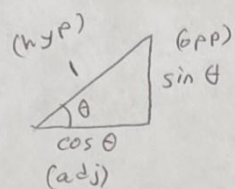 (hyp)
1
(opp)
sin θ
θ
cos θ
(adj)